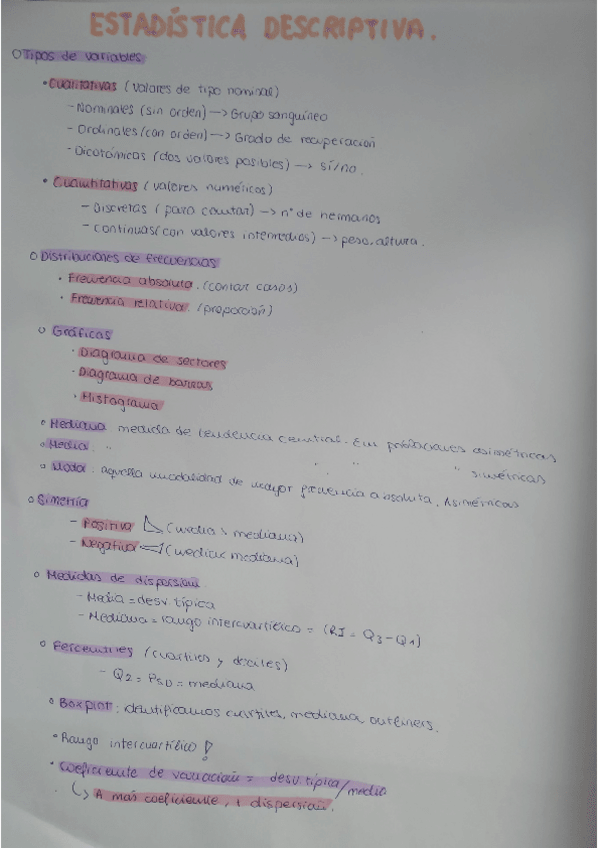 ESTADÍSTICA DESCRIPTIVA.
Tipos de variables
· Cualitativas (valores de tipo nominal)
- Nominales (sin orden) → Grupo sanguíneo
- Ordinales (con orden) → Grado de recuperación
- Dicotómicas (dos valores posibles) → sí/no.
· Cuantitativas (valores numéricos)
- Discretas (para contar) → nº de hermanos
- Continuas (con valores intermedios) → peso, altura.
Distribuciones de frecuencias
· Frecuencia absoluta. (contar casos)
· Frecuencia relativa. (proporción)
Gráficas
· Diagrama de sectores
· Diagrama de barras
· Histograma
Mediana medida de tendencia central. En poblaciones asimétricas
Media: " " " " simétricas
Moda: aquella modalidad de mayor frecuencia absoluta. Asimétricas
Simetría
- Positiva (media > mediana)
- Negativa (media< mediana)
Medidas de dispersión.
- Media = desv típica
- Mediana = rango intercuartílico = (RI = Q3 - Q1)
Percentiles (cuartiles y deciles)
- Q2 = P50 = mediana
Boxplot: identificamos cuartiles, mediana outliners.
Rango intercuartílico !
Coeficiente de variación = desv típica/media
↳ A más coeficiente, + dispersión.